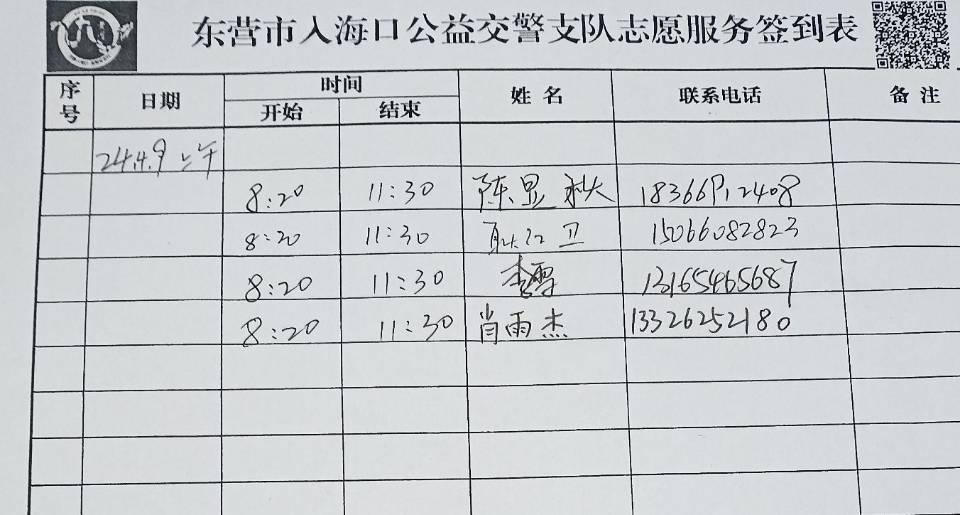 东营市入海口公益交警支队志愿服务签到表
序号 日期 时间 姓名 联系电话 备注
开始 结束
24.4.9 上午
8:20 11:30 陈显秋 18366912408
8:20 11:30 耿江卫 15066082823
8:20 11:30 李雪 13165465687
8:20 11:30 肖雨杰 13326252180